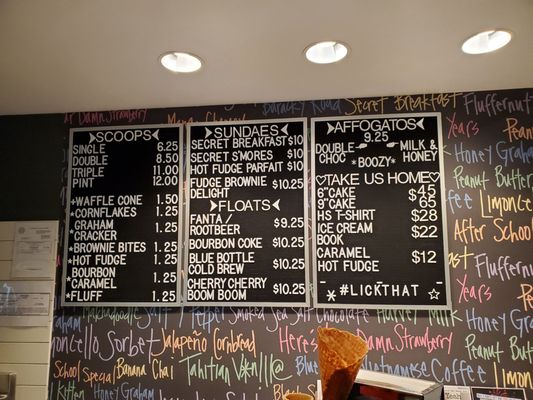 Damn Strawberry
Road
Secret Breakfast
Fluffernut
SCOOPS
SINGLE 6.25
DOUBLE 8.50
TRIPLE 11.00
PINT 12.00
*WAFFLE CONE 1.50
*CORNFLAKES 1.25
*GRAHAM CRACKER 1.25
*BROWNIE BITES 1.25
*HOT FUDGE 1.25
*BOURBON CARAMEL 1.25
*FLUFF 1.25
SUNDAES
SECRET BREAKFAST $10
SECRET S'MORES $10
HOT FUDGE PARFAIT $10
FUDGE BROWNIE $10.25
DELIGHT
FLOATS
FANTA / $9.25
ROOTBEER
BOURBON COKE $10.25
BLUE BOTTLE
COLD BREW $10.25
CHERRY CHERRY
BOOM BOOM $10.25
AFFOGATOS
9.25
DOUBLE CHOC
MILK & HONEY
*BOOZY*
♡TAKE US HOME♡
6"CAKE $45
9"CAKE $65
HS T-SHIRT $28
ICE CREAM BOOK $22
CARAMEL $12
HOT FUDGE
#LICKTHAT
Years
Honey Graham
Peanut Butter
Limon
After School
Fluffernut
years
Honey
Peanut Butter
Coffee
Sorbet
Jalapeño Cornbread
Here's
Damn Strawberry
Vietnamese Coffee
School Special
Banana Chai
Tahitian Vanilla
Honey Graham